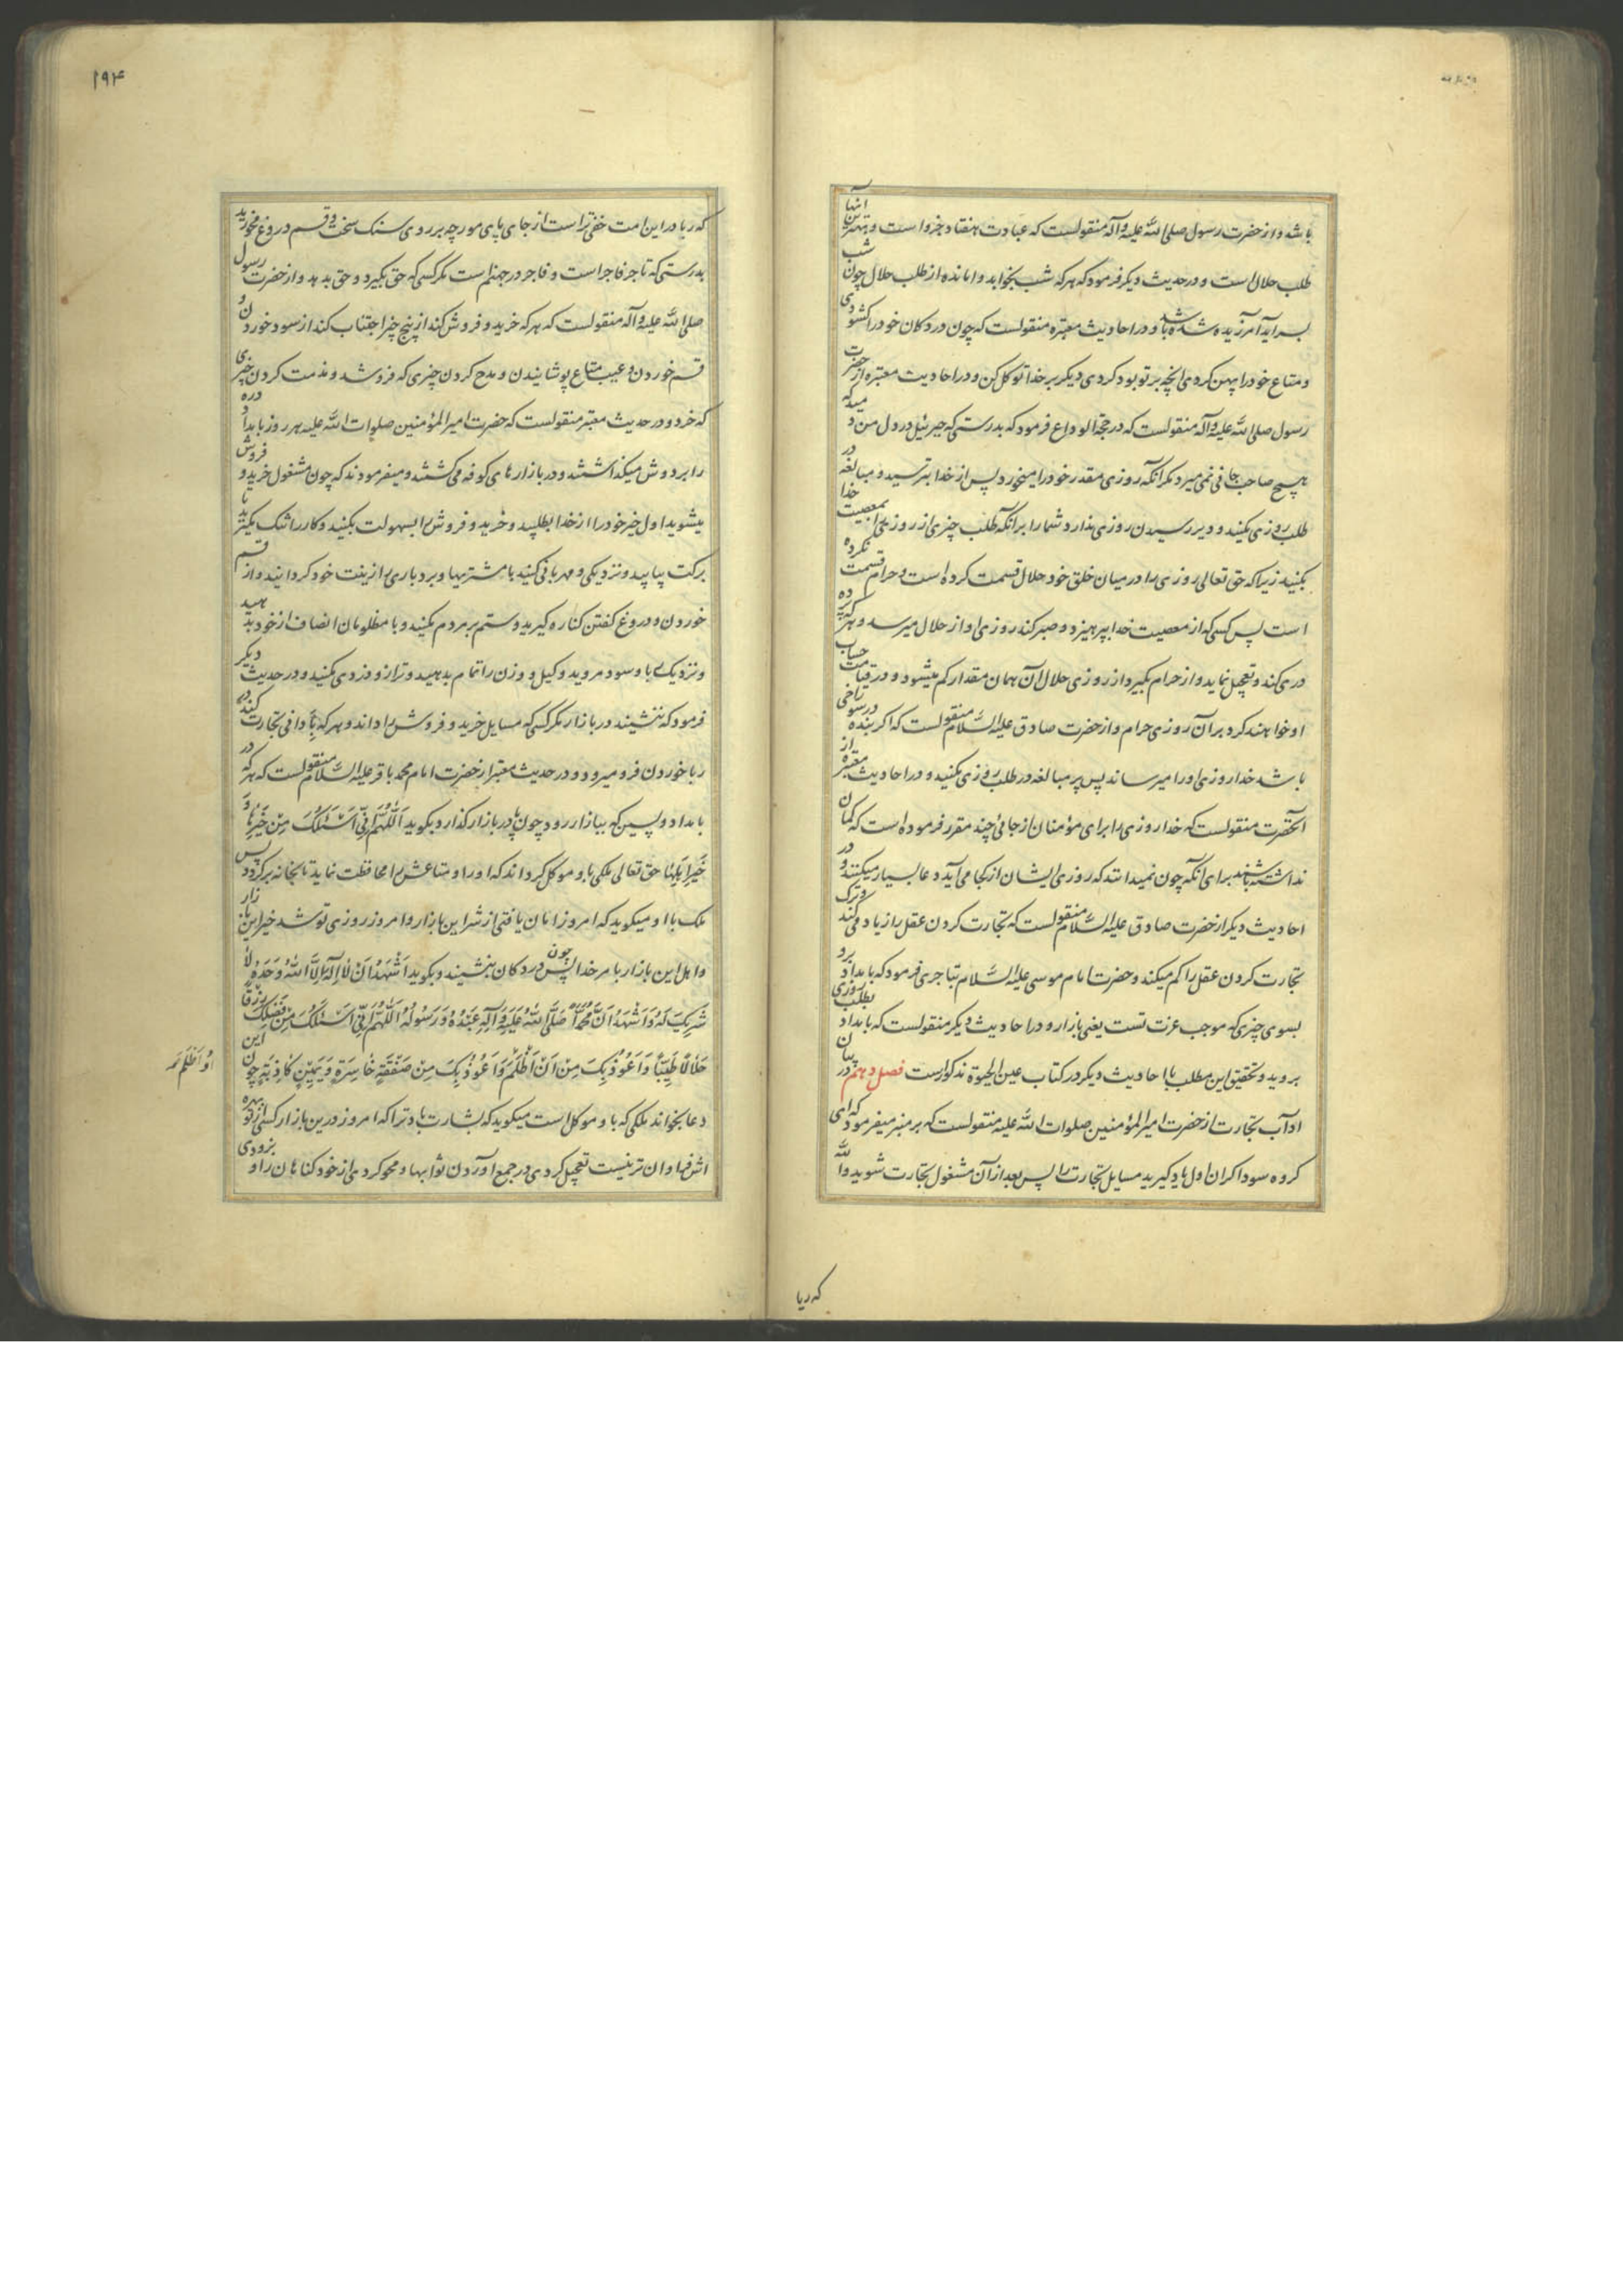 باشد و از حضرت رسول صلی الله علیه و آله منقولست که عبادت هفتاد جزو است و بهترین آنها
طلب حلال است و در حدیث دیگر فرمود که هر که شب بخوابد وامانده از طلب حلال چون شب
بسر آید آمرزیده شده باشد و در احادیث معتبره منقولست که چون در دکان خود را کشودی
و متاع خود را پهن کردی انچه بر تو بود کردی دیکر بر خدا توکل کن و در احادیث معتبره از حضرت
رسول صلی الله علیه و آله منقولست که در حجة الوداع فرمود که بدرستی که جبرئیل در دل من دمید که
هیچ صاحب جانی نمی میرد مکر آنکه روزی مقدر خود را میخورد پس از خدا بترسید و مبالغه در
طلب روزی مکنید و دیر رسیدن روزی نذارد شما را بر آنکه طلب چیزی از روزی بمعصیت خدا
بکنید زیرا که حق تعالی روزی را در میان خلق خود حلال قسمت کرده است و حرام قسمت نکرده
است پس کسی که از معصیت خدا بپرهیزد و صبر کند روزی او از حلال میرسد و هر که پرده
دری کند و تعجیل نماید و از حرام بکیرد از روزی حلال آن همان مقدار کم میشود و در قیامت حساب
او خواهند کرد بر آن روزی حرام و از حضرت صادق علیه السلام منقولست که اکر بنده در سوراخی
باشد خدا روزی او را میرساند پس پر مبالغه در طلب روزی مکنید و در احادیث معتبره از
آنحضرت منقولست که خدا روزی را برای مؤمنان از جائی چند مقرر فرموده است که کمان
نداشته باشند برای آنکه چون نمیدانند که روزی ایشان از کجا می آید دعا بسیار میکنند و در
احادیث دیکر از حضرت صادق علیه السلام منقولست که تجارت کردن عقل را زیاد می کند و ترک
تجارت کردن عقل را کم میکند و حضرت امام موسی علیه السلام بتاجری فرمود که بامداد برو
بسوی چیزی که موجب عزت تست یعنی بازار و در احادیث دیکر منقولست که بامداد بطلب روزی
بروید و تحقیق این مطلب با احادیث دیکر در کتاب عین الحیوة مذکوراست فصل دهم در بیان
آداب تجارت از حضرت امیر المؤمنین صلوات الله علیه منقولست که بر منبر میفرمود که ای
کروه سوداکران اول یاد کیرید مسایل تجارت را پس بعد از آن مشغول تجارت شوید والله
که ریا
۱۹۴
که ریا در این امت خفی تر است از جای پای مورچه بر روی سنک سخت و قسم دروغ مخورید
بدرستی که تاجر فاجر است و فاجر در جهنم است مکر کسی که حق بکیرد و حق بدهد و از حضرت رسول
صلی الله علیه و آله منقولست که هر که خرید و فروش کند از پنج چیز اجتناب کند از سود خوردن و
قسم خوردن و عیب متاع پوشانیدن و مدح کردن چیزی که فروشد و مذمت کردن چیزی
که خرد و در حدیث معتبر منقولست که حضرت امیر المؤمنین صلوات الله علیه هر روز بامداد دره
را بر دوش میکذاشتند و در بازارهای کوفه می کشتند و میفرمودند که چون مشغول خرید و فروش
میشوید اول خیر خود را از خدا بطلبید و خرید و فروش را بسهولت بکنید و کار را تنک مکیرید تا
برکت بیابید و نزدیکی و مهربانی کنید با مشتریها و بردباری را زینت خود کردانید و از قسم
خوردن و دروغ کفتن کناره کیرید و ستم بر مردم مکنید و با مظلومان انصاف از خود بدهید
و نزدیک ربا و سود مروید و کیل و وزن را تمام بدهید و ترازو دزدی مکنید و در حدیث دیکر
فرمود که ننشیند در بازار مکر کسی که مسایل خرید و فروش را داند و هر که بنادانی تجارت کند در
ربا خوردن فرو میرود و در حدیث معتبر از حضرت امام محمد باقر علیه السلام منقولست که هر که در
بامداد و پسین که ببازار رود چون پا در بازار کذارد بکوید اَللّهُمَّ اِنّی اَسْئَلُکَ مِنْ خَیْرِها وَ
خَیْرِ اَهْلِها حق تعالی ملکی باو موکل کرداند که او را و متاعش را محافظت نماید تا بخانه برکردد پس
ملک با او میکوید که امروز امان یافتی از شر این بازار و امروز روزی تو شد خیر این بازار
و اهل این بازار بامر خدا پس چون در دکان بنشیند و بکوید اَشْهَدُ اَنْ لا اِلهَ اِلَّا اللهُ وَحْدَهُ لا
شَریکَ لَهُ وَ اَشْهَدُ اَنَّ مُحَمَّداً صَلَّی اللهُ عَلَیْهِ وَ آلِهِ عَبْدُهُ وَ رَسُولُهُ اَللّهُمَّ اِنّی اَسْئَلُکَ مِنْ فَضْلِکَ رِزْقاً
حَلالاً طَیِّباً وَ اَعُوذُ بِکَ مِنْ اَنْ اَظْلِمَ وَ اَعُوذُ بِکَ مِنْ صَفْقَةٍ خاسِرَةٍ وَ یَمینٍ کاذِبَةٍ چون این
اَوْ اُظْلَمَ
دعا بخواند ملکی که باو موکل است میکوید که بشارت باد ترا که امروز درین بازار کسی از تو بهره
اش فراوان تر نیست تعجیل کردی در جمع آوردن ثوابها و محو کردی از خود کناهان را و بزودی